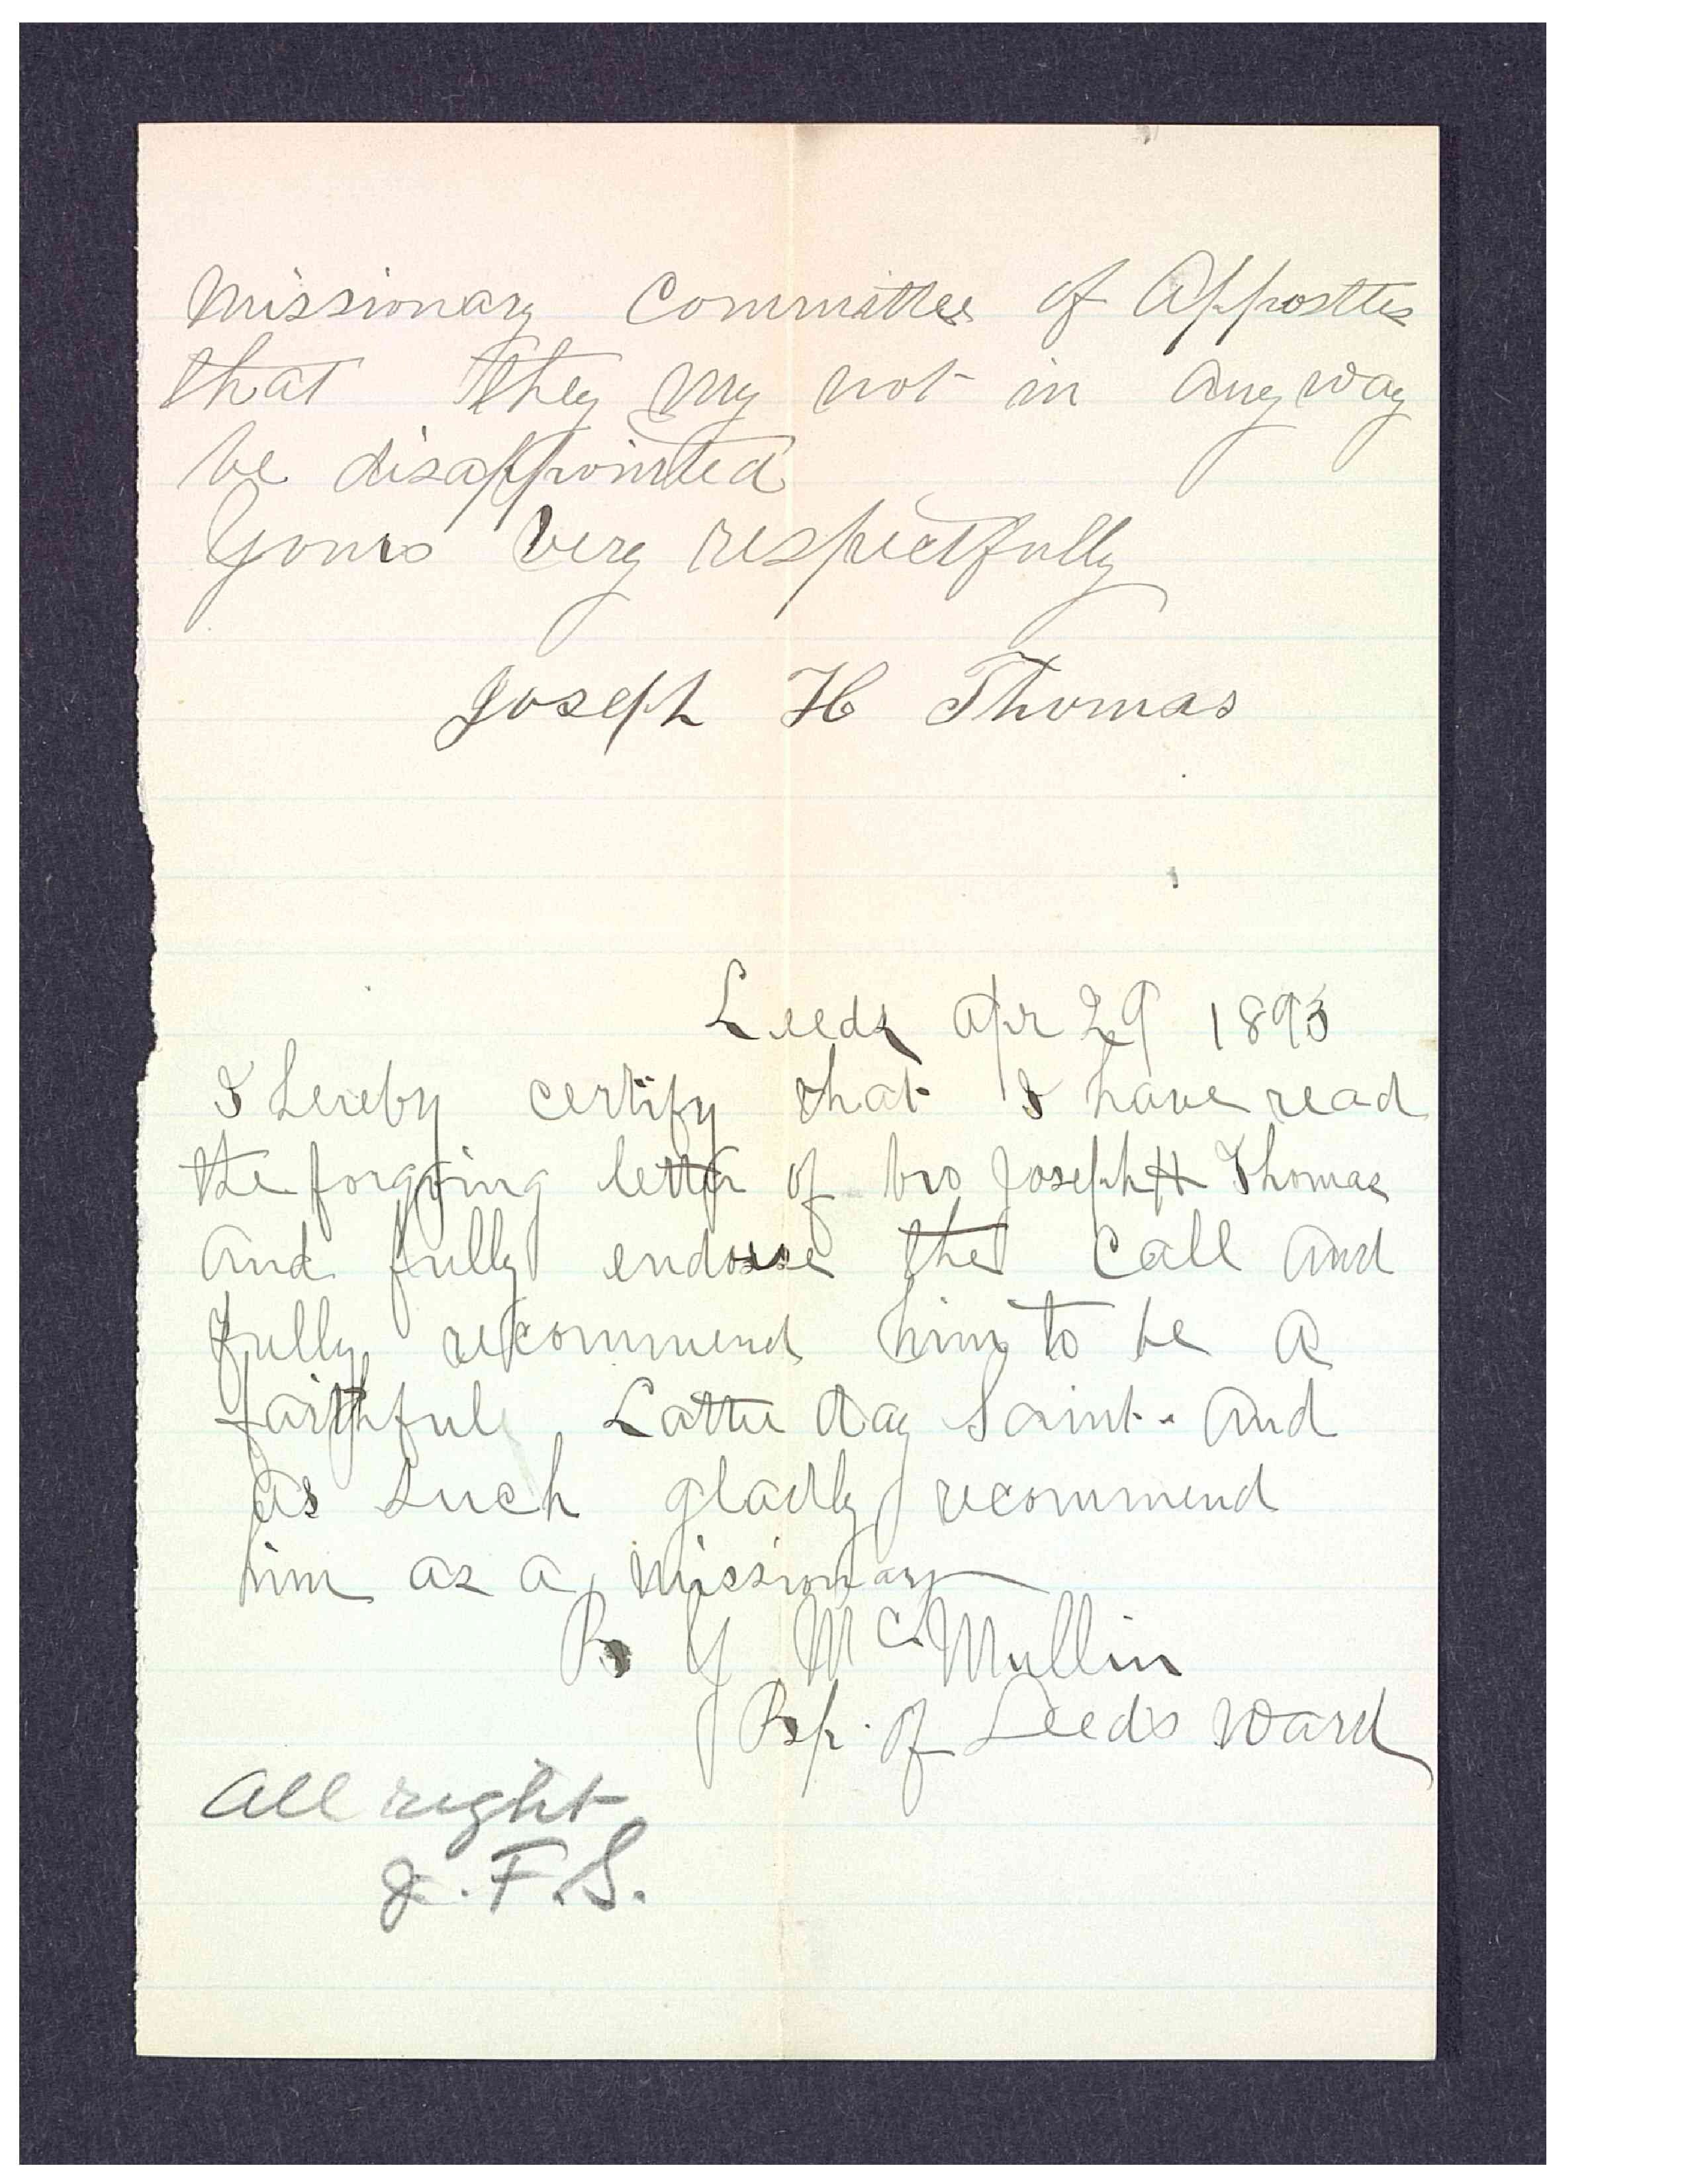 missionary Committee of Appostles
that they my not in any way
be disappointed
Yours very respectfully
Joseph H Thomas
Leeds Apr 29 1893
I hereby certify that I have read
the forgoing letter of bro Joseph H Thomas
and fully endorse the call and
fully recommend him to be a
faithful Latter day Saint. and
as such gladly recommend
him as a missionary
B Y McMullin
Bp. of Leeds Ward
All right
J. F. S.